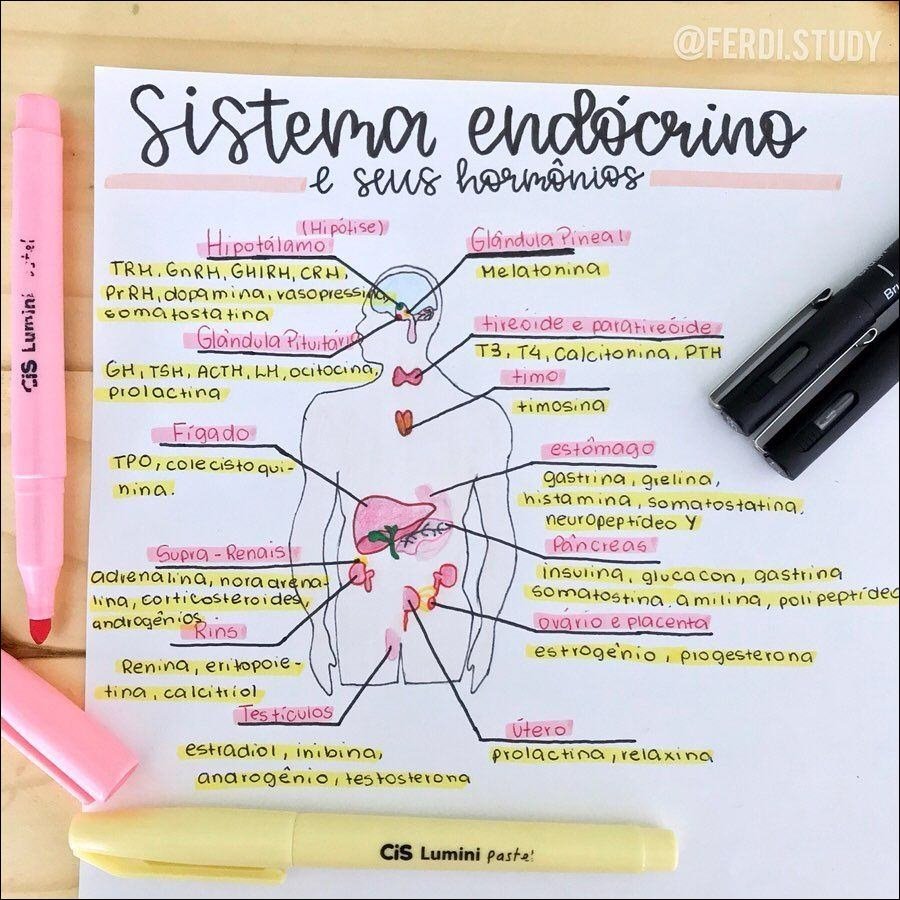 @FERDI.STUDY
Sistema endócrino
e seus hormônios
(Hipófise)
Hipotálamo
TRH, GnRH, GHIRH, CRH,
PrRH, dopamina, vasopressina,
somatostatina
Glândula Pituitária
GH, TSH, ACTH, LH, ocitocina,
prolactina
Fígado
TPO, colecistoqui-
nina.
Supra-Renais
adrenalina, noradrena-
lina, corticosteroides,
androgênios
Rins
Renina, eritopoie-
tina, calcitriol
Testículos
estradiol, inibina,
androgênio, testosterona
Glândula Pineal
Melatonina
tireóide e paratireóide
T3, T4, calcitonina, PTH
timo
timosina
estômago
gastrina, grelina,
histamina, somatostatina,
neuropeptídeo Y
Pâncreas
insulina, glucacon, gastrina
somatostina, amilina, polipeptídeo
ovário e placenta
estrogênio, progesterona
Útero
prolactina, relaxina
CiS Lumini
CiS Lumini pastel
Bru